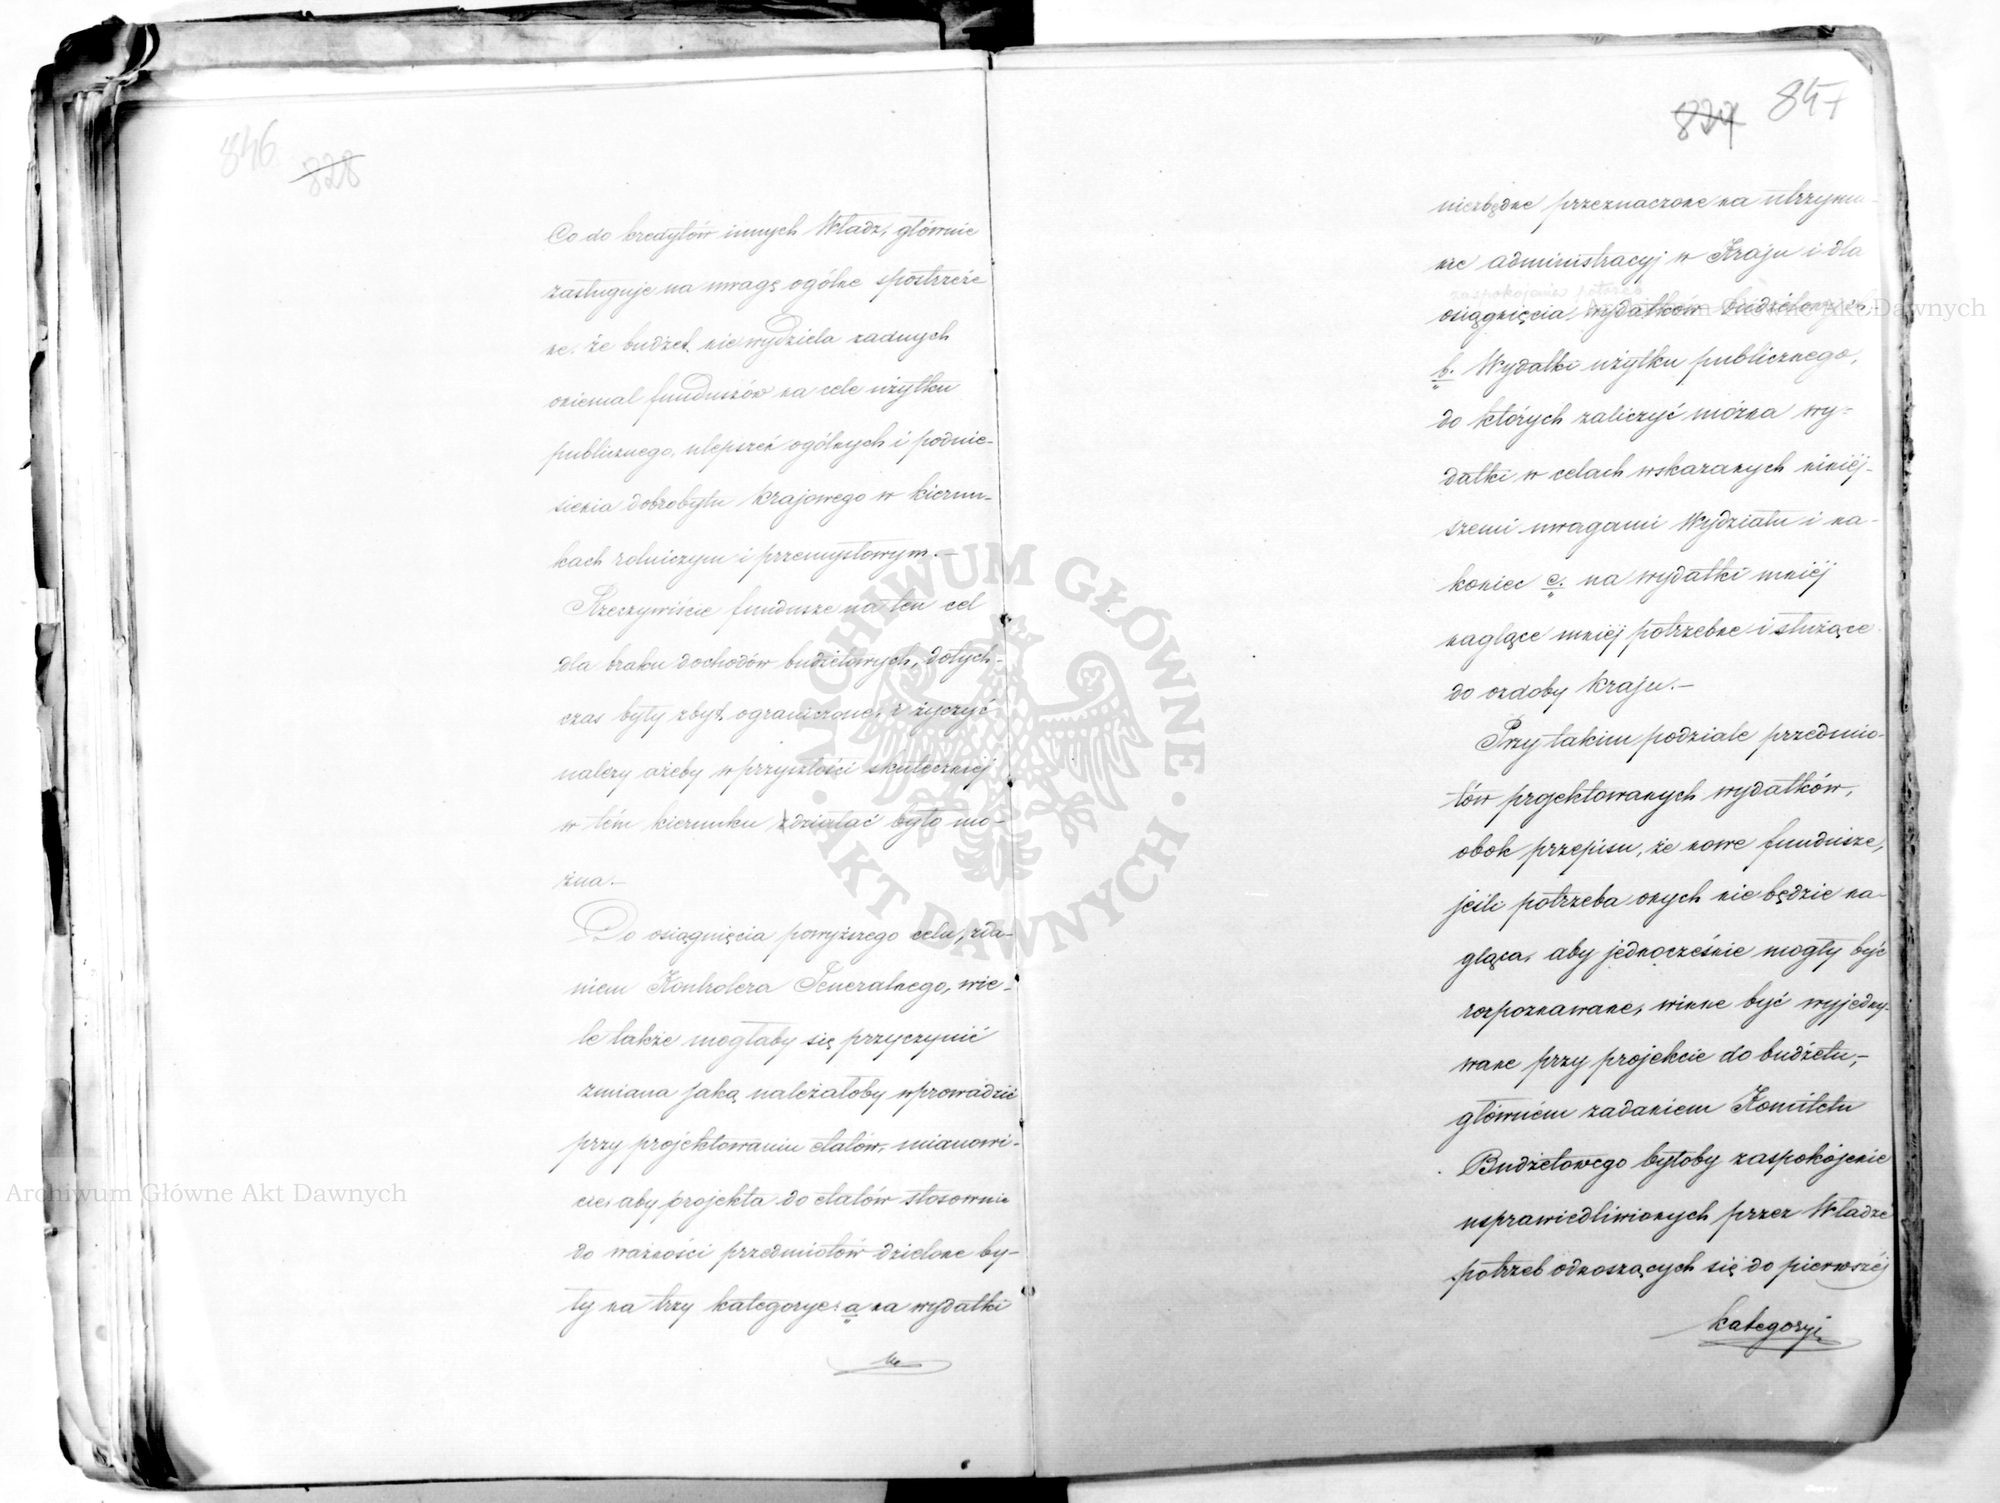 846
828
Co do kredytów innych Władz, głównie
zasługuje na uwagę ogólne spostrzeże
nie, że budżet nie wydziela żadnych
oniemal funduszów na cele użytku
publicznego, ulepszeń ogólnych i podnie-
sienia dobrobytu krajowego w kierun-
kach rolniczym i przemysłowym.—
Rzeczywiście fundusze na ten cel
dla braku dochodów budżetowych, dotych-
czas były zbyt ograniczone, i życzyć
należy ażeby w przyszłości skuteczniéj
w tém kierunku zdziałać było mo-
żna.—
Do osiągnięcia powyższego celu, zda-
niem Kontrolera Jeneralnego, wie-
le także mogłaby się przyczynić
zmiana jaką należałoby wprowadzić
przy projektowaniu etatów, mianowi-
cie, aby projekta do etatów stosownie
do ważności przedmiotów dzielone by-
ły na trzy kategorye: a na wydatki
nie
827 847
niezbędne przeznaczone na utrzyma-
nie administracyj w Kraju i dla
zaspokojenia potrzeb
osiągnięcia wydatków budżetowych.
b. Wydatki użytku publicznego,
do których zaliczyć można wy-
datki w celach wskazanych niniéj-
szemi uwagami Wydziału i na-
koniec c. na wydatki mniéj
naglące mniéj potrzebne i służące
do ozdoby kraju.—
Przy takim podziale przedmio-
tów projektowanych wydatków,
obok przepisu, że nowe fundusze,
jeśli potrzeba onych nie będzie na-
gląca, aby jednocześnie mogły być
rozpoznawane, winne być wyjedny-
wane przy projekcie do budżetu,—
głównem zadaniem Komitetu
Budżetowego byłoby zaspokojenie
usprawiedliwionych przez Władze
potrzeb odnoszących się do pierwszéj
kategoryi
Archiwum Główne Akt Dawnych
Archiwum Główne Akt Dawnych
ARCHIWUM GŁÓWNE
AKT DAWNYCH